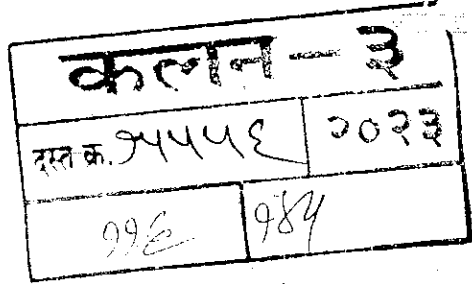 कलन - ३
दस्त क. १५५५६ २०२३
११६ १४५